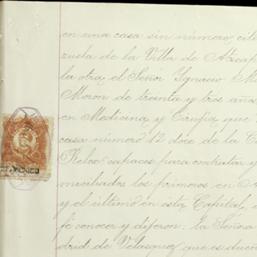 en una casa sin número, sita
zuela de la Villa de Azcap
la otra, el Señor Ygnacio
Moron de treinta y tres años
en Medicina y Cirujia, que
casa número 12 doce de la C
Relox, capaces para contratar y
los primeros en
y el último en esta Capital, 
fé conocer y dijeron: la Señora
drid de Velasquez, que es dueña